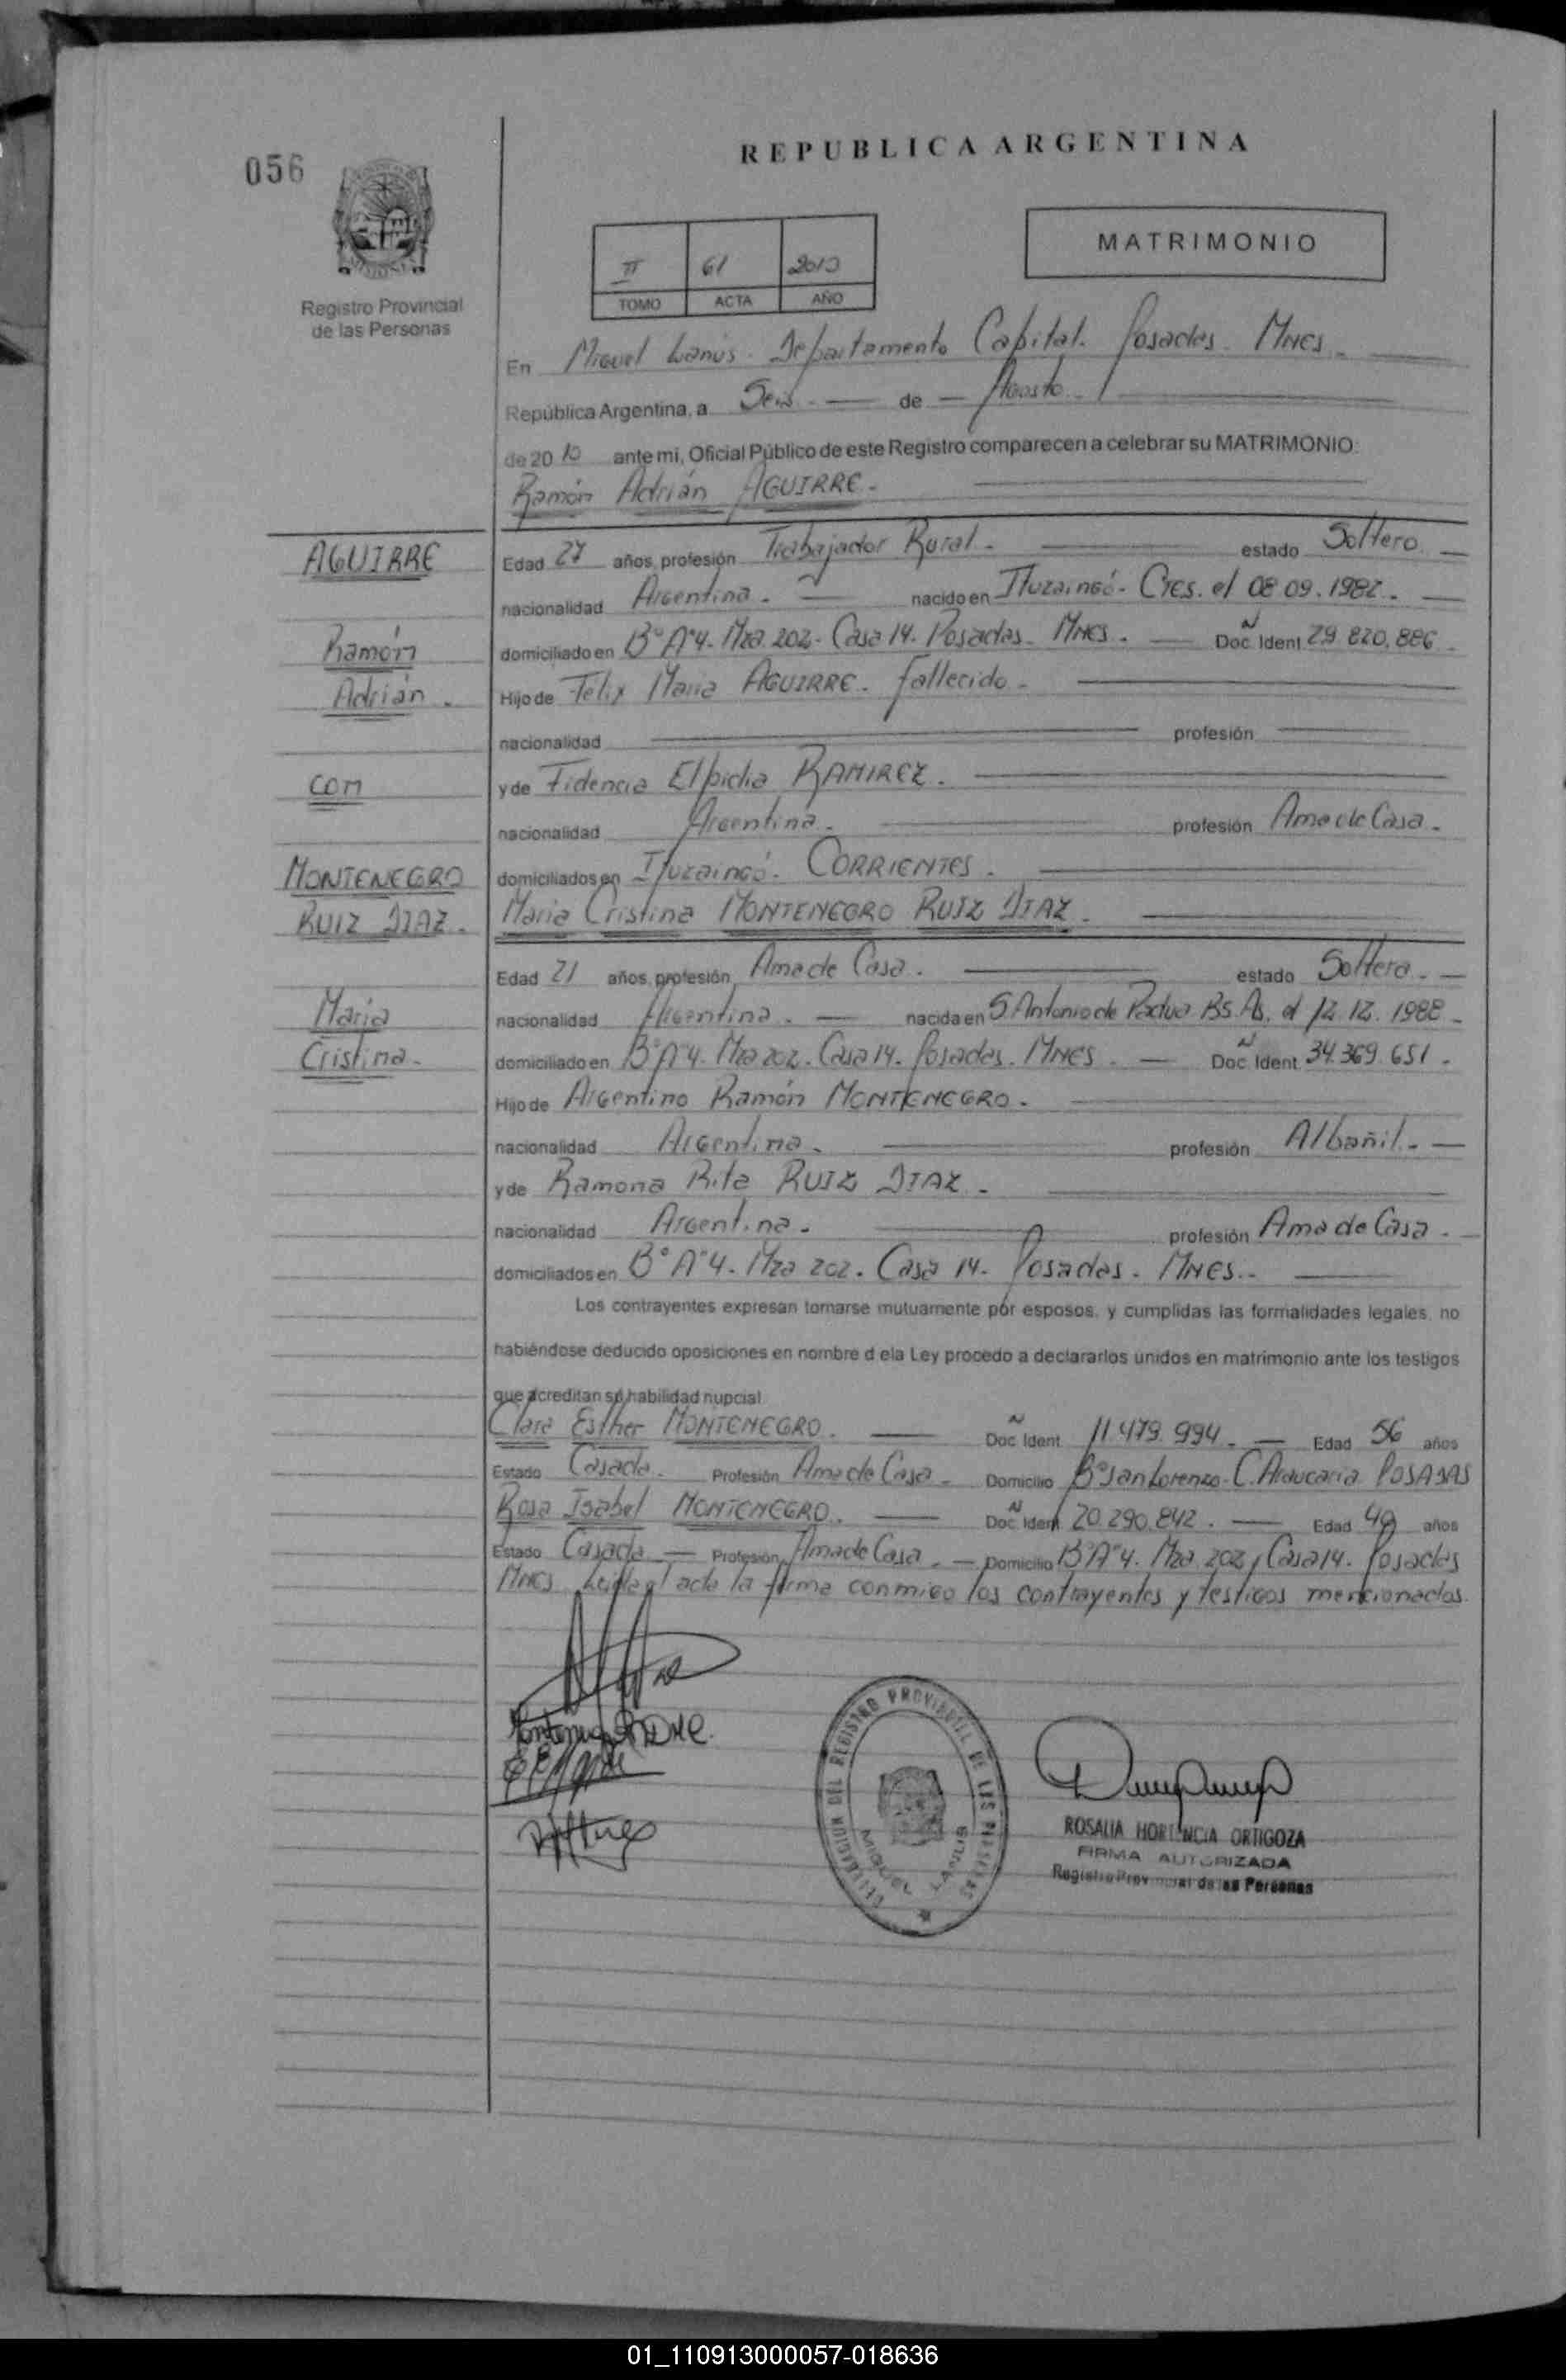 056
REPUBLICA ARGENTINA
MATRIMONIO
II 61 2010
TOMO ACTA AÑO
Registro Provincial
de las Personas
En Miguel Lanús. Departamento Capital. Posadas. Mnes.
República Argentina, a Seis de Agosto
de 20 10 ante mi, Oficial Público de este Registro comparecen a celebrar su MATRIMONIO:
Ramón Adrián AGUIRRE.
AGUIRRE
Ramón
Adrián.
con
MONTENEGRO
RUIZ DIAZ.
María
Cristina.
Edad 27 años, profesión Trabajador Rural. estado Soltero.
nacionalidad Argentina. nacido en Ituzaingó. Ctes. el 08.09.1982.
domiciliado en B° A°4. Mza. 202. Casa 14. Posadas. Mnes. Doc. Ident 29.820.886.
Hijo de Félix María AGUIRRE. fallecido.
nacionalidad profesión
y de Fidencia Elpidia RAMIREZ.
nacionalidad Argentina. profesión Ama de Casa.
domiciliados en Ituzaingó. CORRIENTES.
María Cristina MONTENEGRO RUIZ DIAZ.
Edad 21 años, profesión Ama de Casa. estado Soltera.
nacionalidad Argentina. nacida en S. Antonio de Padua Bs. As. el 12.12.1988.
domiciliado en B° A°4. Mza 202. Casa 14. Posadas. Mnes. Doc. Ident 34.369.651.
Hijo de Argentino Ramón MONTENEGRO.
nacionalidad Argentina. profesión Albañil.
y de Ramona Rita RUIZ DIAZ.
nacionalidad Argentina. profesión Ama de Casa.
domiciliados en B° A°4. Mza 202. Casa 14. Posadas. Mnes.
Los contrayentes expresan tomarse mutuamente pór esposos, y cumplidas las formalidades legales, no
habiéndose deducido oposiciones en nombre d ela Ley procedo a declararlos unidos en matrimonio ante los testigos
que acreditan su habilidad nupcial
Clara Esther MONTENEGRO. Doc. Ident 11.479.994. Edad 56 años
Estado Casada. Profesión Ama de Casa. Domicilio B° San Lorenzo. C. Araucaria POSADAS
Rosa Isabel MONTENEGRO. Doc. Ident 20.290.842. Edad 40 años
Estado Casada Profesión Ama de Casa. Domicilio B° A°4. Mza. 202, Casa 14. Posadas
Mnes. Leída el acta la firma conmigo los contrayentes y testigos mencionados.
DELEGACION DEL REGISTRO PROVINCIAL DE LAS PERSONAS
MIGUEL LANUS
ROSALIA HORTENCIA ORTIGOZA
FIRMA AUTORIZADA
Registro Provincial de las Personas
01_110913000057-018636